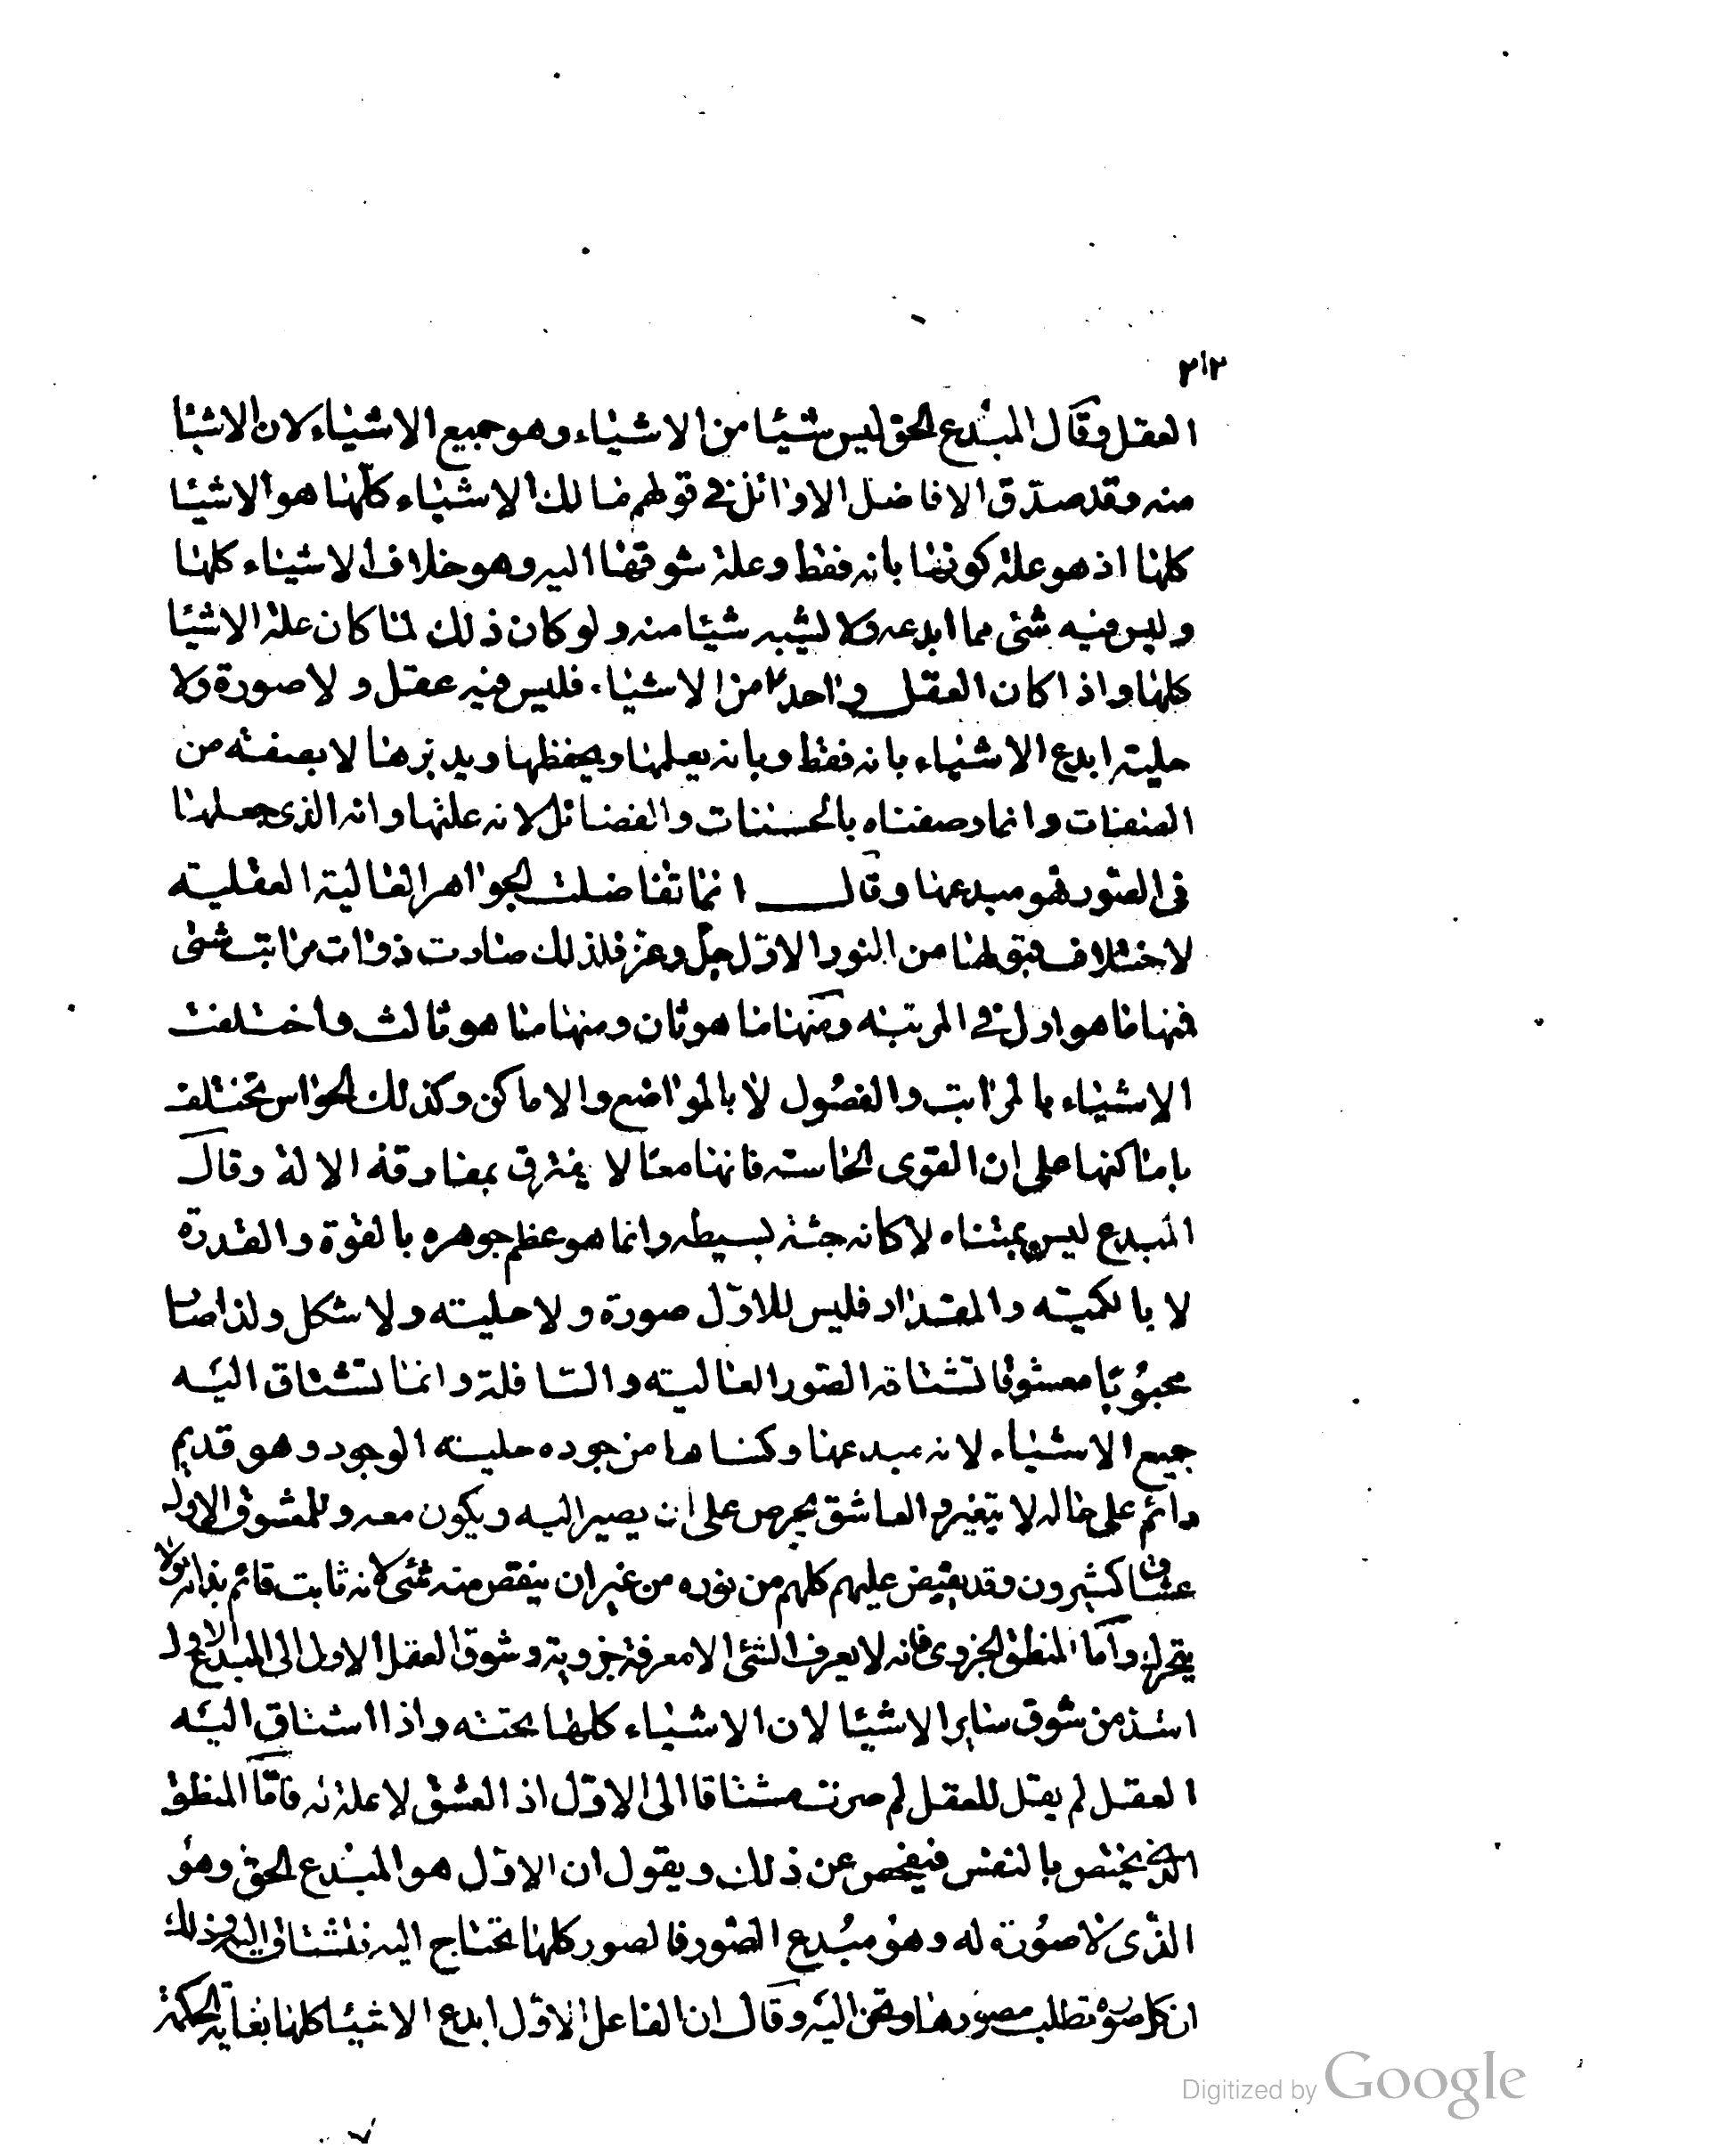 ٢١٢
العقل وقال المبدع الحق ليس شيئا من الاشياء وهو جميع الاشياء لان الاشيا
منه وقد صدق الافاضل الاوائل في قولهم مالك الاشياء كلها هو الاشيا
كلها اذ هو علة كونها بانه فقط وعلة شوقها اليه وهو خلاف الاشياء كلها
وليس فيه شئ مما ابدعه ولا يشبه شيئا منه ولو كان ذلك لما كان علة الاشيا
كلها واذا كان العقل واحدا من الاشياء فليس فيه عقل ولا صورة ولا
حلية ابدع الاشياء بانه فقط وبانه يعلمها ويحفظها ويدبرها لا بصفته من
الصفات وانما وصفناه بالحسنات والفضائل لانه علتها وانه الذي جعلها
في الصور فهو مبدعها وقال انما تفاضلت الجواهر العالية العقلية
لاختلاف قبولها من النور الاول جل وعز فلذلك صارت ذوات مراتب شتى
فمنها ما هو اول في المرتبة ومنها ما هو ثان ومنها ما هو ثالث واختلفت
الاشياء بالمراتب والفصول لا بالمواضع والاماكن وكذلك الحواس تختلف
باماكنها على ان القوى الحاسة فانها معا لا يفترق بمفارقة الالة وقال
المبدع ليس بمتناه لا كانه جثة بسيطه وانما هو عظم جوهره بالقوة والقدرة
لا بالكمية والمقدار فليس للاول صورة ولا حلية ولا شكل ولذا صار
محبوبا معشوقا تشتاقه الصور العالية والسافلة وانما تشتاق اليه
جميع الاشياء لانه مبدعها وكساها من جوده حلية الوجود وهو قديم
دائم على حاله لا يتغير والعاشق يحرص على ان يصير اليه ويكون معه وللمعشوق الاول
عشاق كثيرون وقد يفيض عليهم كلهم من نوره من غير ان ينقص منه شئ لانه ثابت قائم بذاته لا
يتحرك واما المنطق الجزوي فانه لا يعرف الشئ الا معرفة جزوية وشوق العقل الاول الى المبدع الاول
اشد من شوق ساير الاشيا لان الاشياء كلها تحته واذا اشتاق اليه
العقل لم يقل للعقل لم صرت مشتاقا الى الاول اذ العشق لا علة له فاما المنطق
الذي يختص بالنفس فيفحص عن ذلك ويقول ان الاول هو المبدع الحق وهو
الذي لا صورة له وهو مبدع الصور فالصور كلها تحتاج اليه فتشتاق اليه وذلك
ان كل صورة تطلب مصورها وتحن اليه وقال ان الفاعل الاول ابدع الاشيا كلها بغاية الحكمة
Digitized by Google